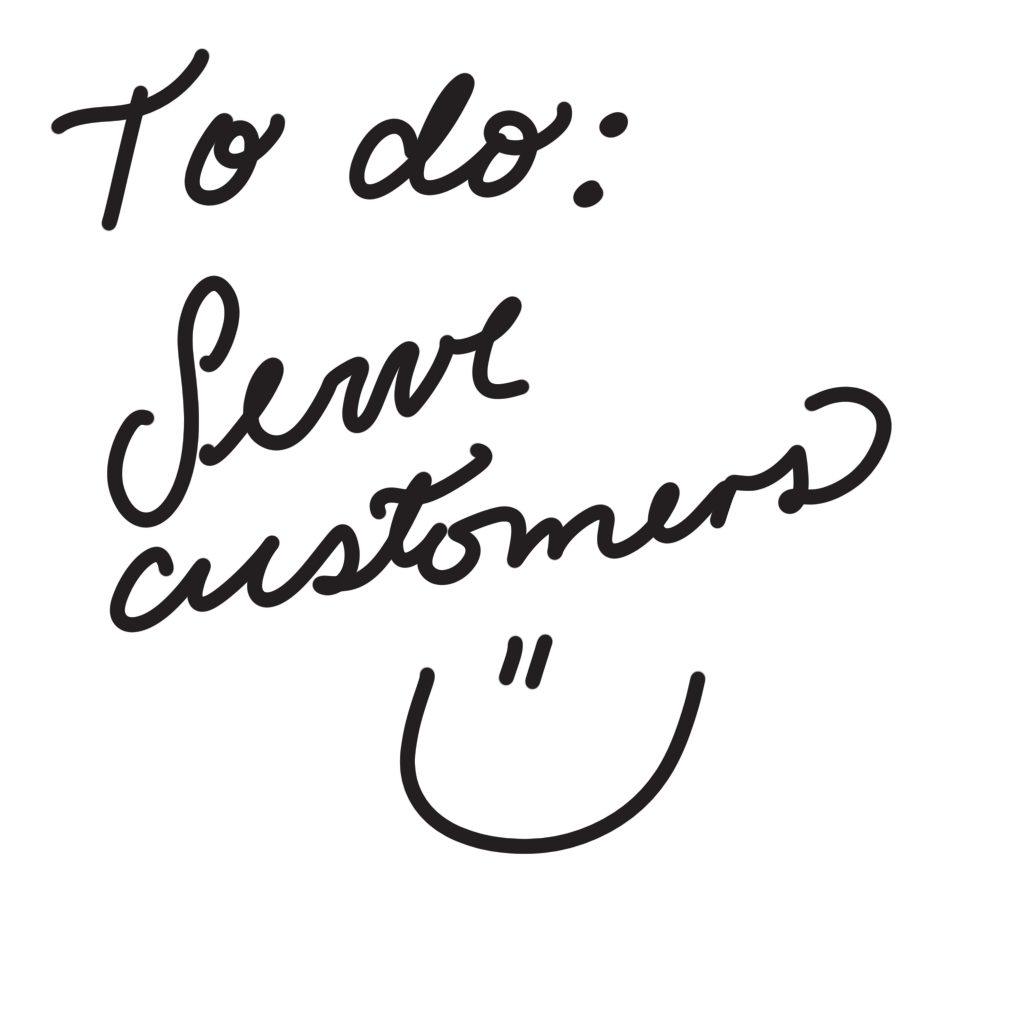 To do:
Serve
customers